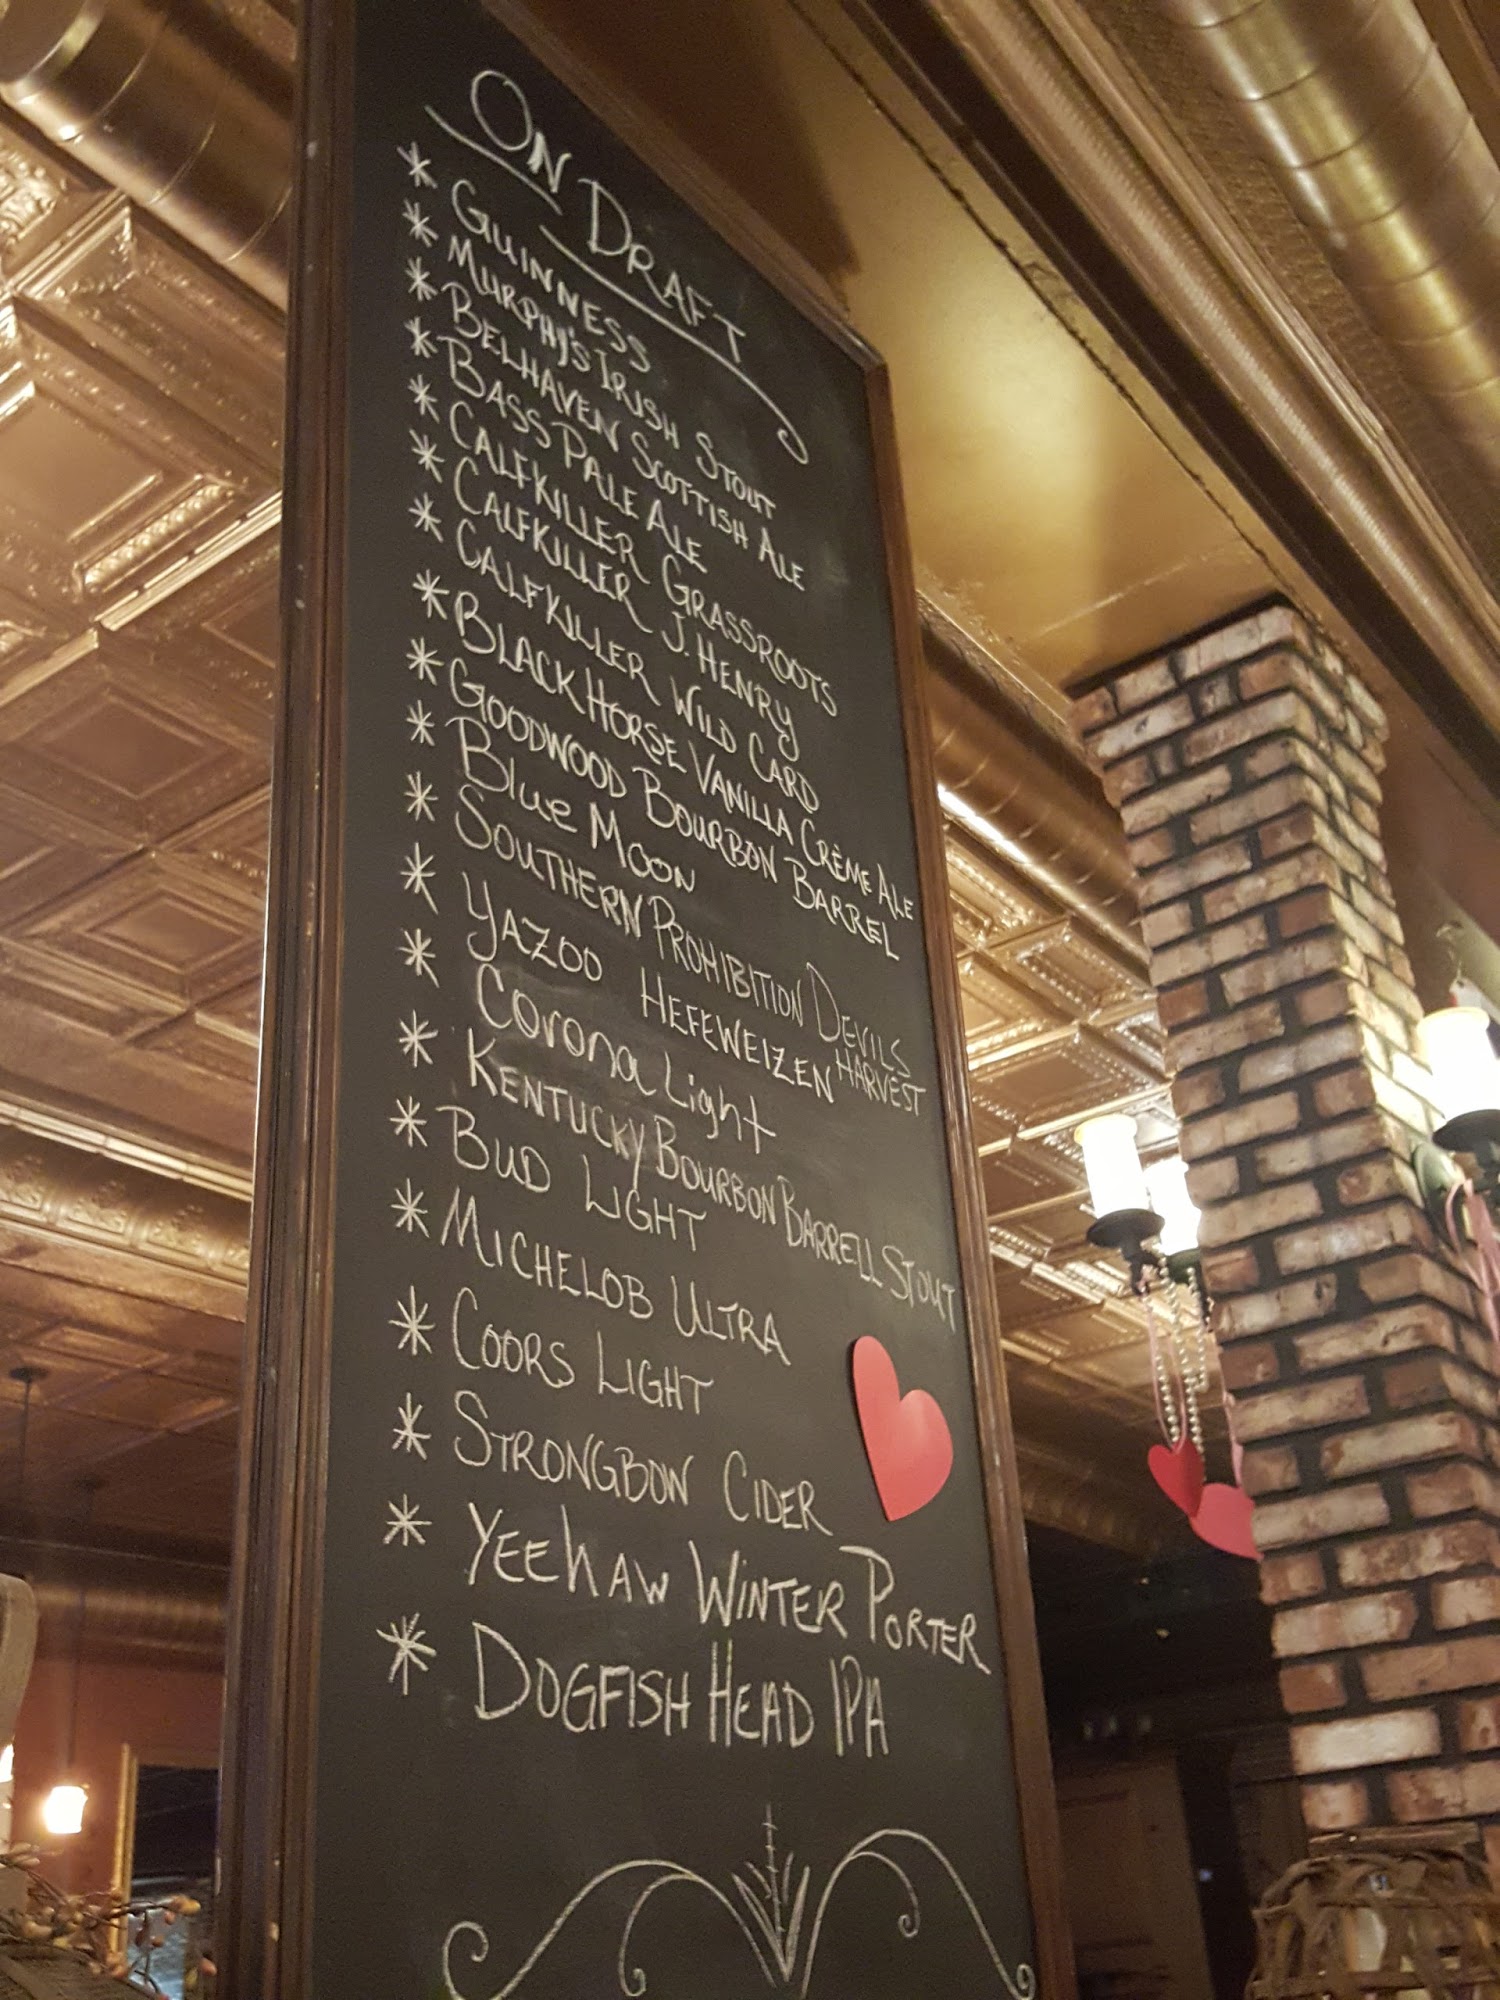 On Draft
* Guinness
* Murphy's Irish Stout
* Belhaven Scottish Ale
* Bass Pale Ale
* Calfkiller Grassroots
* Calfkiller J. Henry
* Calfkiller Wild Card
* Black Horse Vanilla Crème Ale
* Goodwood Bourbon Barrel
* Blue Moon
* Southern Prohibition Devils
Harvest
* Yazoo Hefeweizen
* Corona Light
* Kentucky Bourbon Barrell Stout
* Bud Light
* Michelob Ultra
* Coors Light
* Strongbow Cider
* Yeehaw Winter Porter
* Dogfish Head IPA